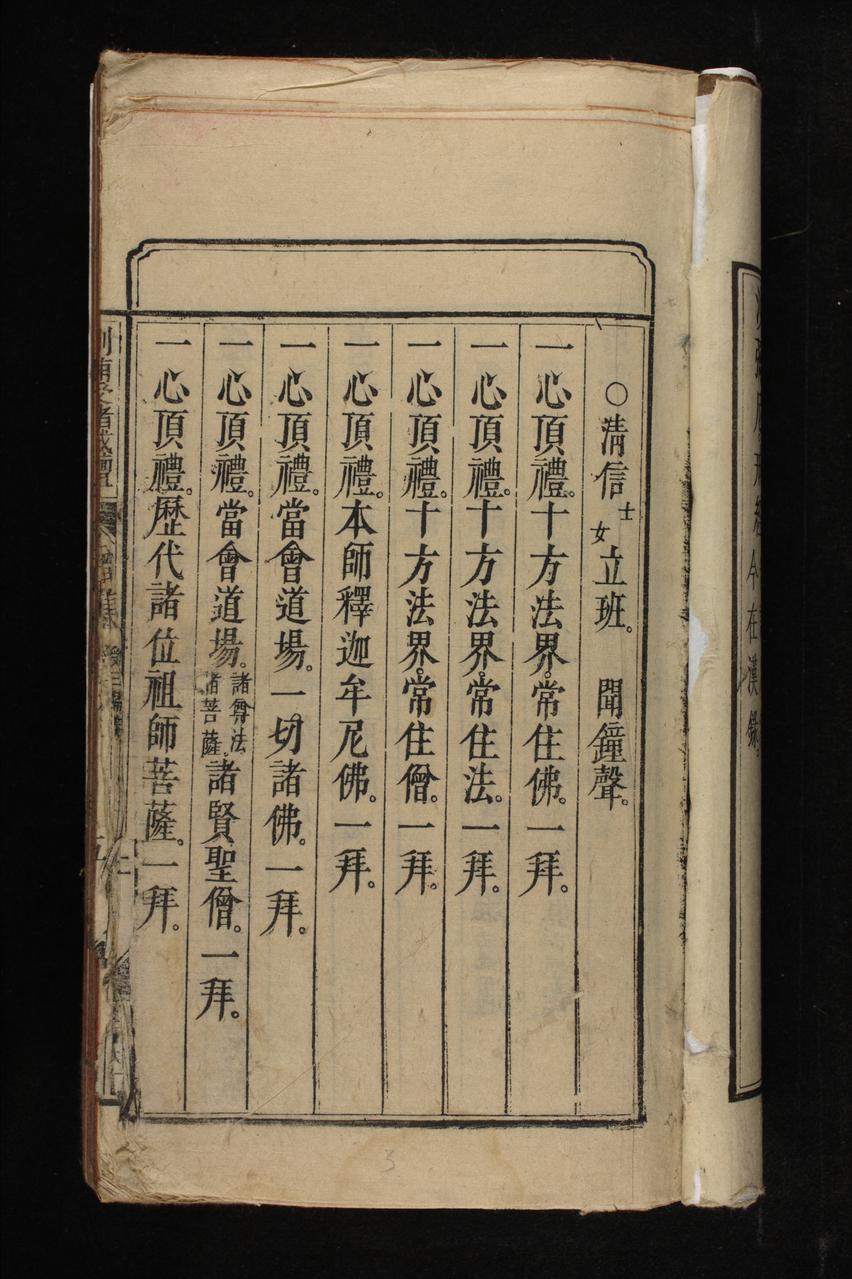 ○清信士女立班。聞鐘聲。
一心頂禮。十方法界。常住佛。一拜。
一心頂禮。十方法界。常住法。一拜。
一心頂禮。十方法界。常住僧。一拜。
一心頂禮。本師釋迦牟尼佛。一拜。
一心頂禮。當會道場。一切諸佛。一拜。
一心頂禮。當會道場。諸尊法。諸菩薩。諸賢聖僧。一拜。
一心頂禮。歷代諸位祖師菩薩。一拜。
今在漢錄。
3